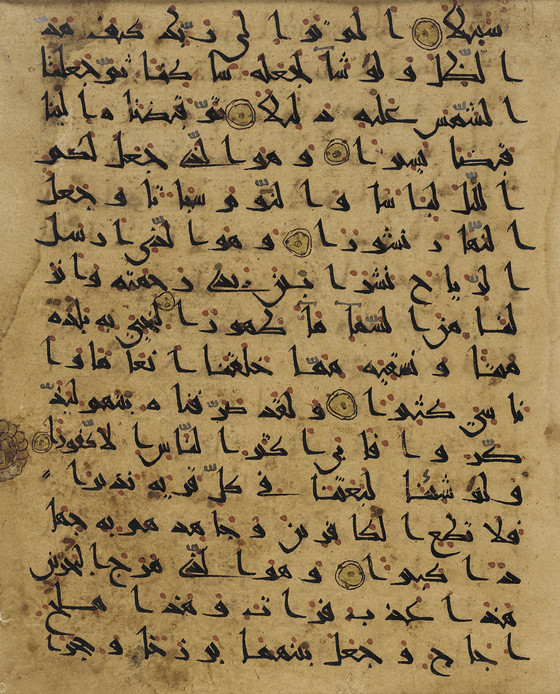 سبيلا الم تر الى ربك كيف مد
الظل ولو شا لجعله ساكنا ثم جعلنا
الشمس عليه دليلا ثم قبضناه الينا
قبضا يسيرا وهو الذي جعل لكم
الليل لباسا والنوم سباتا وجعل
النهار نشورا وهو الذي ارسل
الرياح نشرا بين يدي رحمته وانز
لنا من السما ما طهورا لنحيي به بلدة
ميتا ونسقيه مما خلقنا انعاما وا
ناسي كثيرا ولقد صرفناه بينهم ليذ
كروا فابى اكثر الناس الا كفورا
ولو شئنا لبعثنا في كل قرية نذيرا
فلا تطع الكافرين وجاهدهم به جها
دا كبيرا وهو الذي مرج البحرين
هذا عذب فرات وهذا ملح
اجاج وجعل بينهما برزخا وحجرا